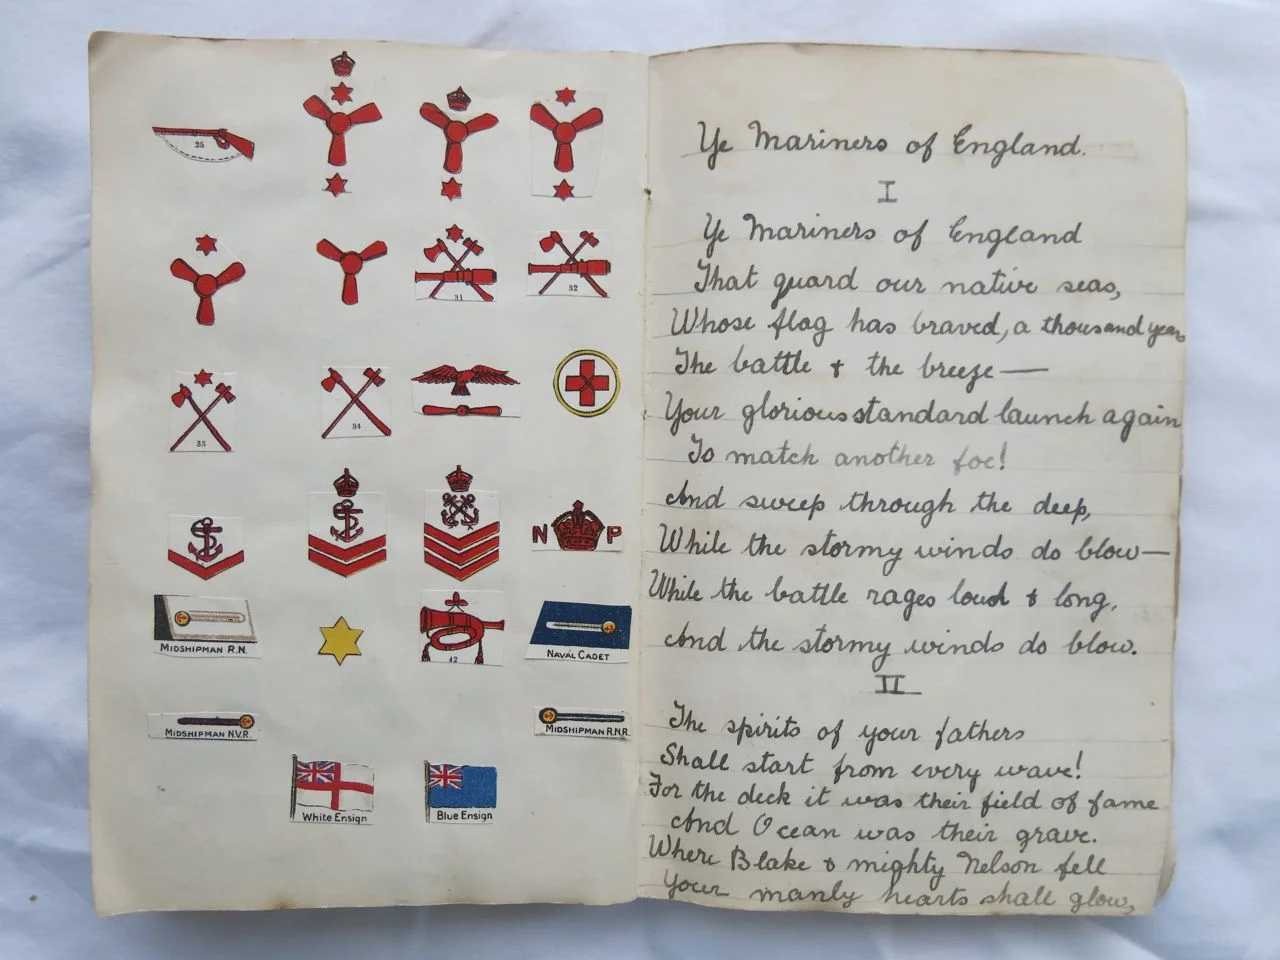 25
31
32
33
34
N P
MIDSHIPMAN R.N.
42
NAVAL CADET
MIDSHIPMAN N.V.R.
MIDSHIPMAN R.N.R.
White Ensign
Blue Ensign
Ye Mariners of England.
I
Ye Mariners of England
That guard our native seas,
Whose flag has braved, a thousand years
The battle & the breeze —
Your glorious standard launch again
To match another foe!
And sweep through the deep,
While the stormy winds do blow —
While the battle rages loud & long,
And the stormy winds do blow.
II
The spirits of your fathers
Shall start from every wave!
For the deck it was their field of fame
And Ocean was their grave.
Where Blake & mighty Nelson fell
Your manly hearts shall glow,